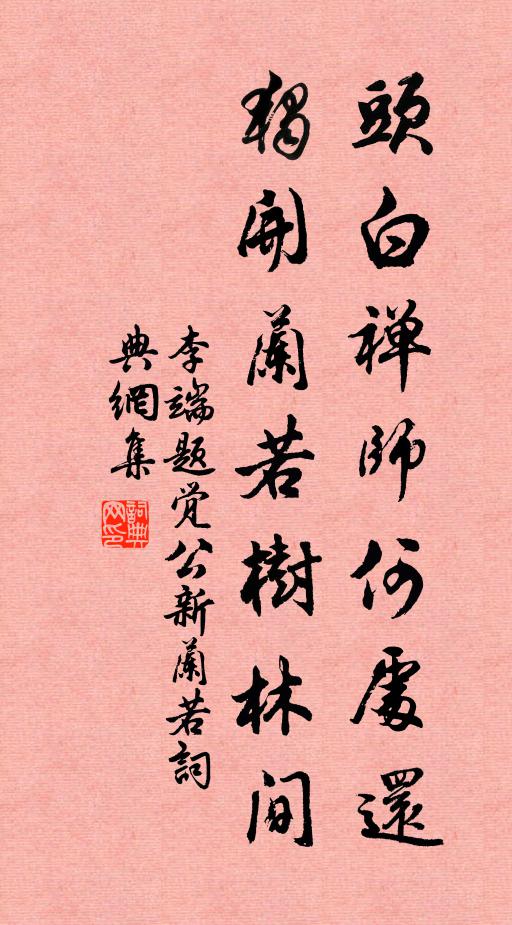 頭白禅師何處還
獨開蘭若樹林間
李端題觉公新蘭若詞
典網集
詞典
网印